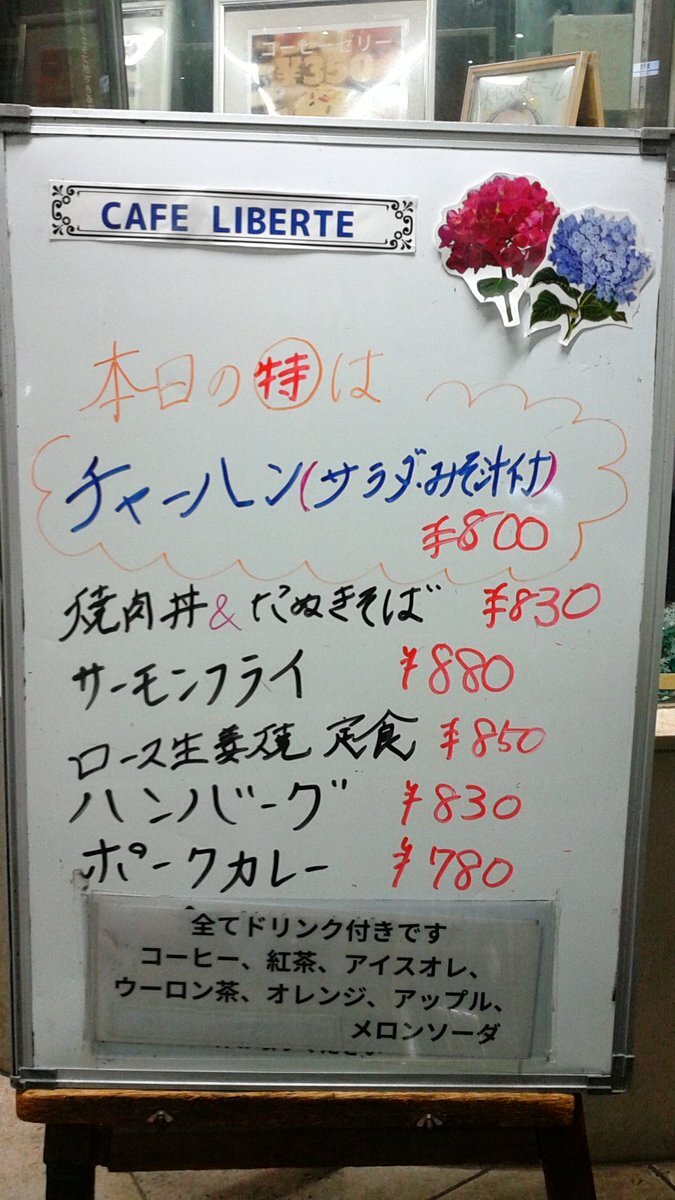 コーヒーゼリー
¥350
CAFE LIBERTE
本日の特は
チャーハン(サラダ・みそ汁付)
¥800
焼肉丼&たぬきそば ¥830
サーモンフライ ¥880
ロース生姜焼 定食 ¥850
ハンバーグ ¥830
ポークカレー ¥780
全てドリンク付きです
コーヒー、紅茶、アイスオレ、
ウーロン茶、オレンジ、アップル、
メロンソーダ